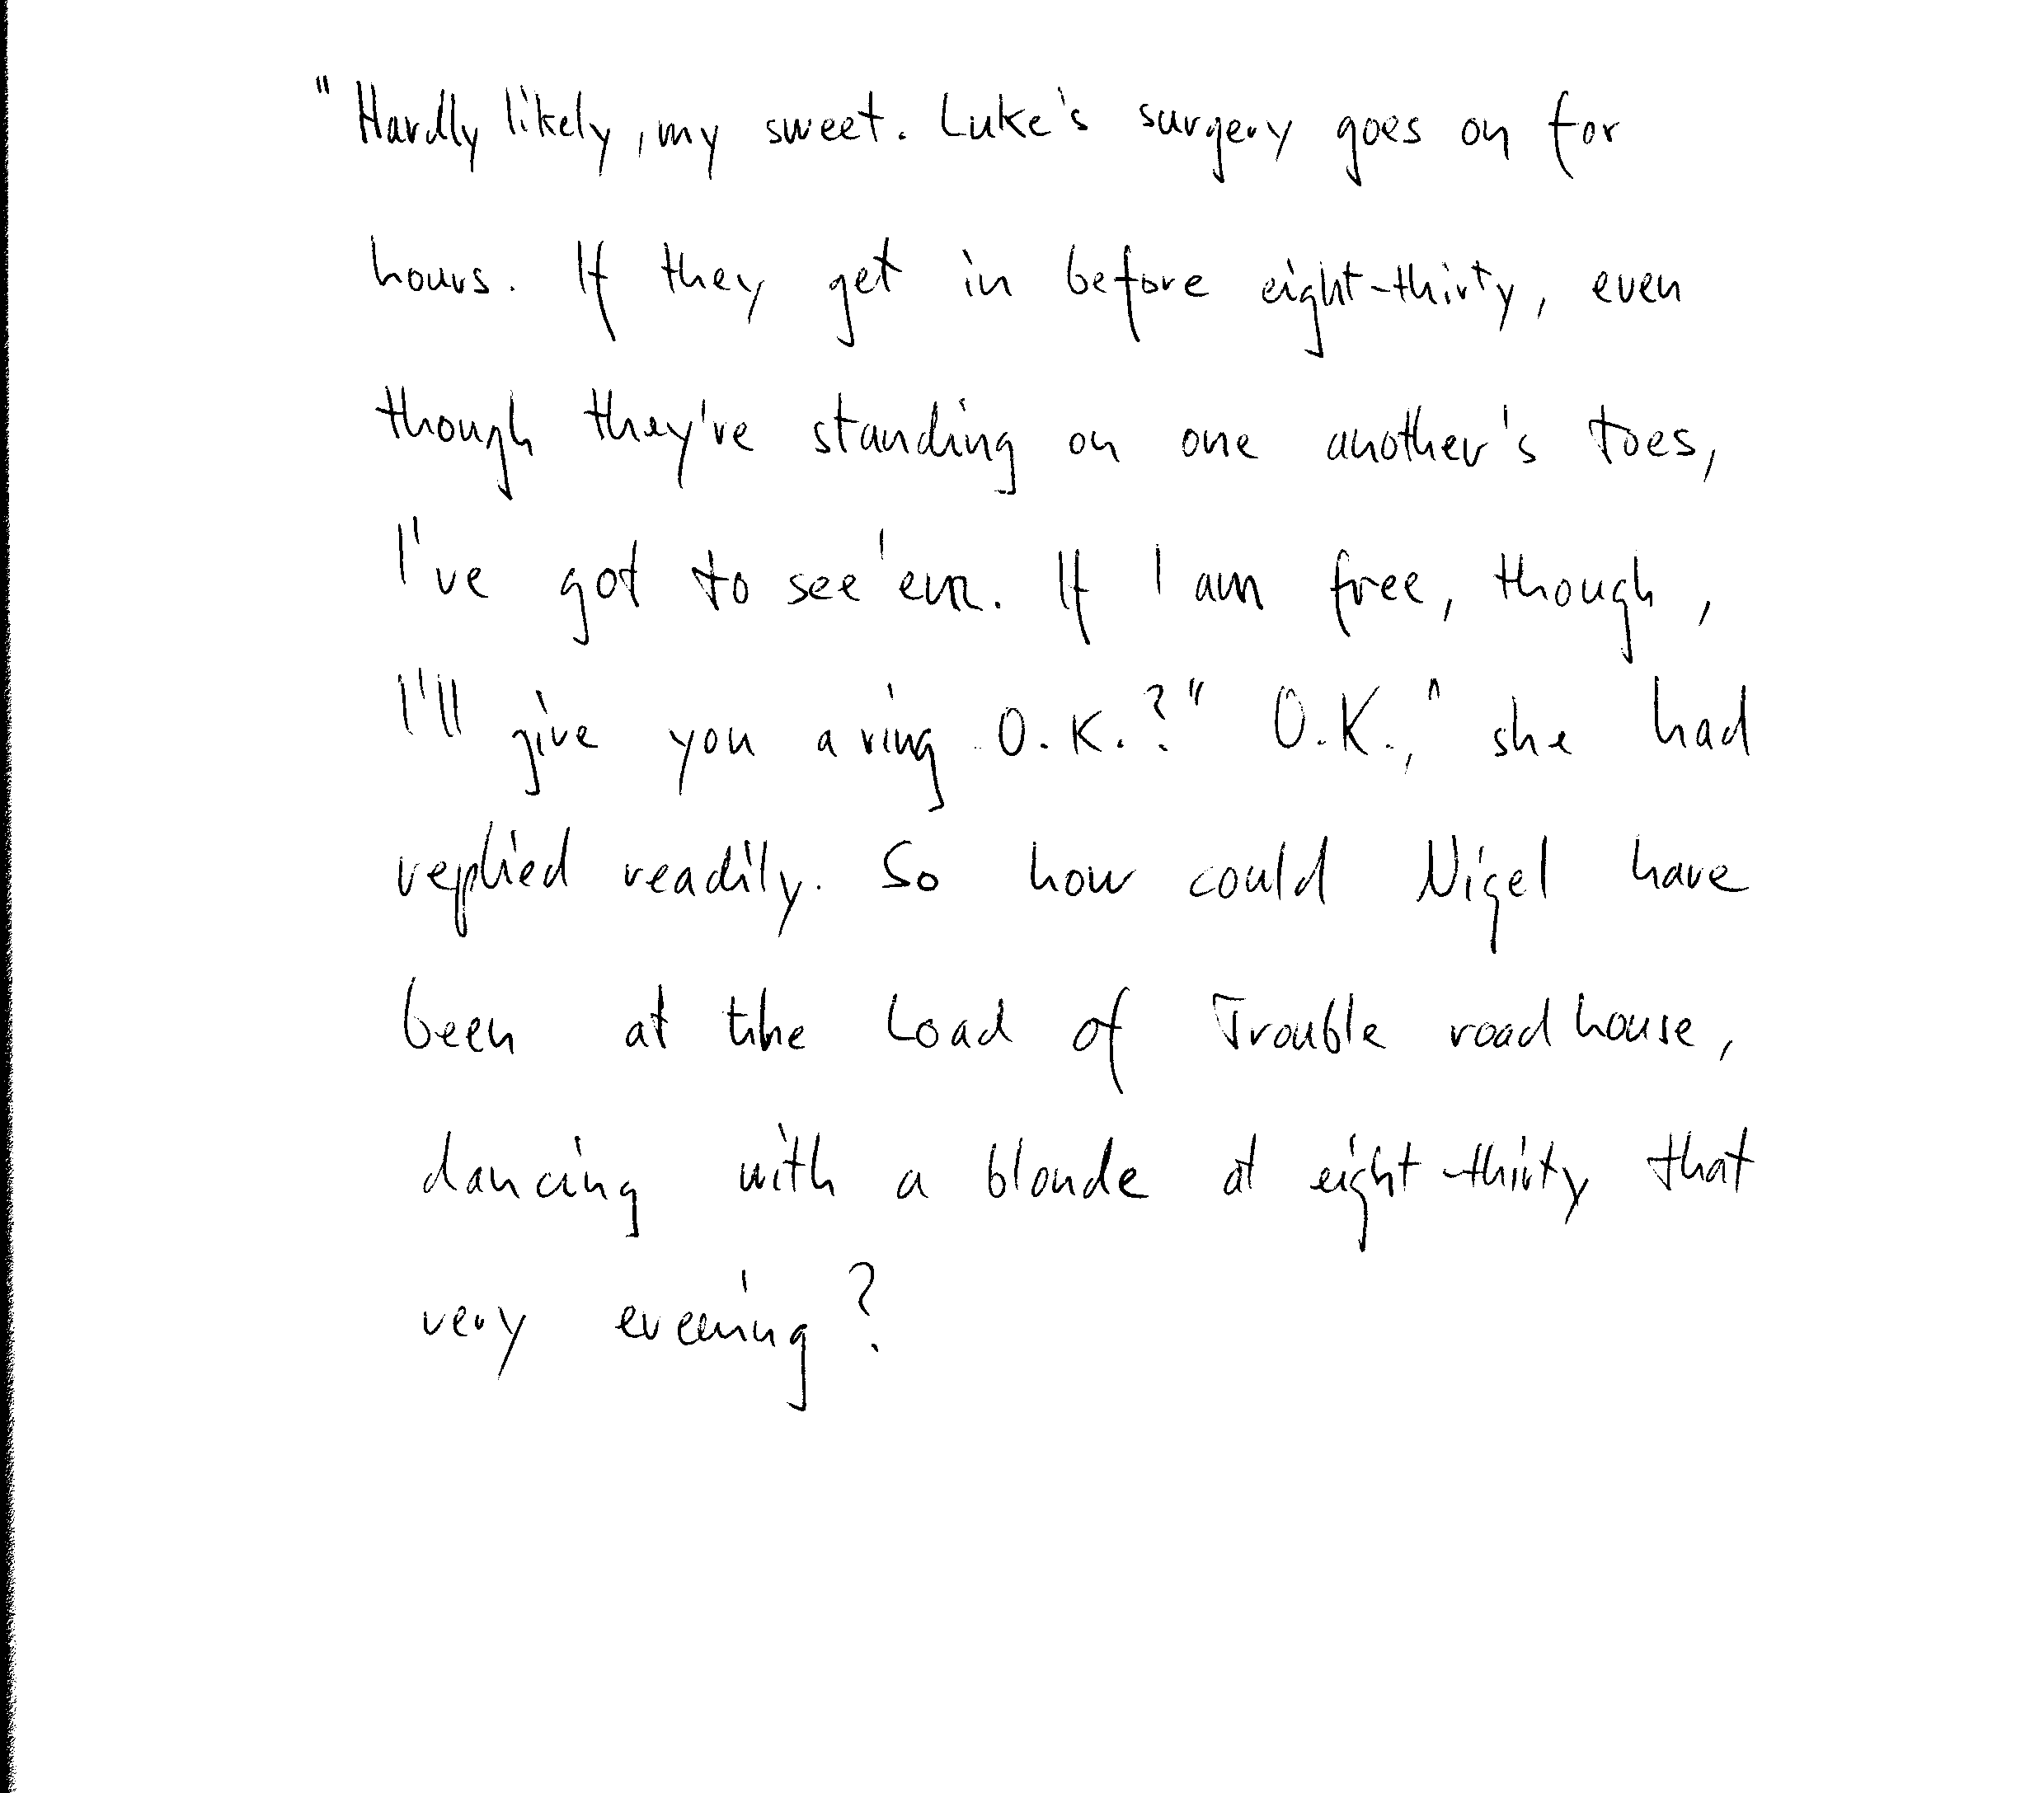 "Hardly likely, my sweet. Luke's surgery goes on for
hours. If they get in before eight-thirty, even
though they're standing on one another's toes,
I've got to see 'em. If I am free, though,
I'll give you a ring O.K.?" O.K.," she had
replied readily. So how could Nigel have
been at the Load of Trouble roadhouse,
dancing with a blonde at eight-thirty that
very evening?